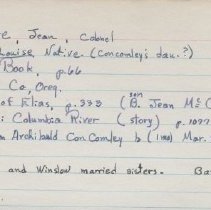 , Jean, Colonel
Louise Native. (Concomley's dau.?)
Book, p.66
Co, Oreg.
of Elias, p.333 (B. son Jean Mc
: Columbia River (story) p.1077
Archibald ConComley b (1180) Mar.
and Winslow married sisters. Ba